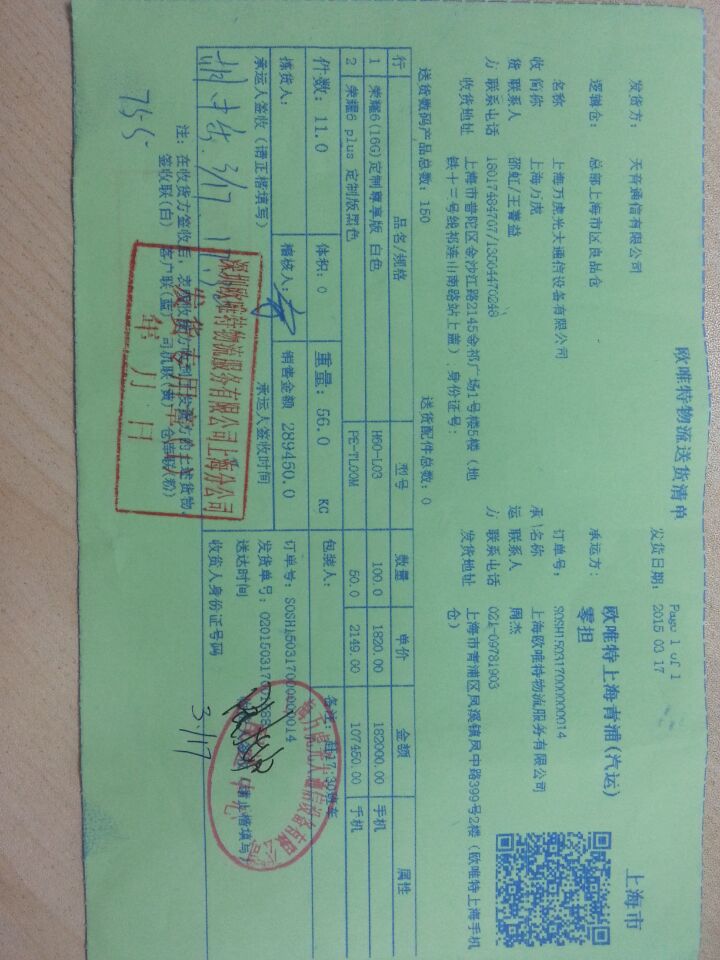 欧唯特物流送货清单
Page 1 of 1
发货日期: 2015 03 17
上海市
发货方: 天音通信有限公司
承运方: 欧唯特上海青浦(汽运)零担
逻辑仓: 总部上海市区良品仓
订单号: SOSH150317000000014
收货方
名称 上海万虎光大通信设备有限公司
简称 上海万虎
联系人 邵虹/王蓍益
联系电话 18017484707/13504470248
收货地址 上海市普陀区金沙江路2145金祁广场1号楼5楼（地铁十三号线祁连山南路站上盖）,身份证号:
承运方
名称 上海欧唯特物流服务有限公司
联系人 周杰
联系电话 021-09781903
发货地址 上海市青浦区凤溪镇凤中路399号2楼（欧唯特上海手机仓）
送货数码产品总数: 150 送货配件总数: 0
行 品名/规格 型号 数量 单价 金额 属性
1 荣耀6(16G)定制尊享版 白色 H60-L03 100.0 1820.00 182000.00 手机
2 荣耀6 plus 定制版黑色 PE-TL00M 50.0 2149.00 107450.00 手机
件数: 11.0 体积: 0 重量: 56.0 KG 包装人:
备注:
拣货人: 稽核人: 销售金额 289450.0 订单号: SOSH150317000000014
承运人签收（请正楷填写） 承运人签收时间 发货单号:
3/17
送达时间
3/17
收货人身份证号码
755
深圳欧唯特物流服务有限公司上海分公司
发货专用章
年 月 日
注: 在收货方签收后,
签收联(白) 客户联(蓝) 司机联(黄) 仓库联(粉)